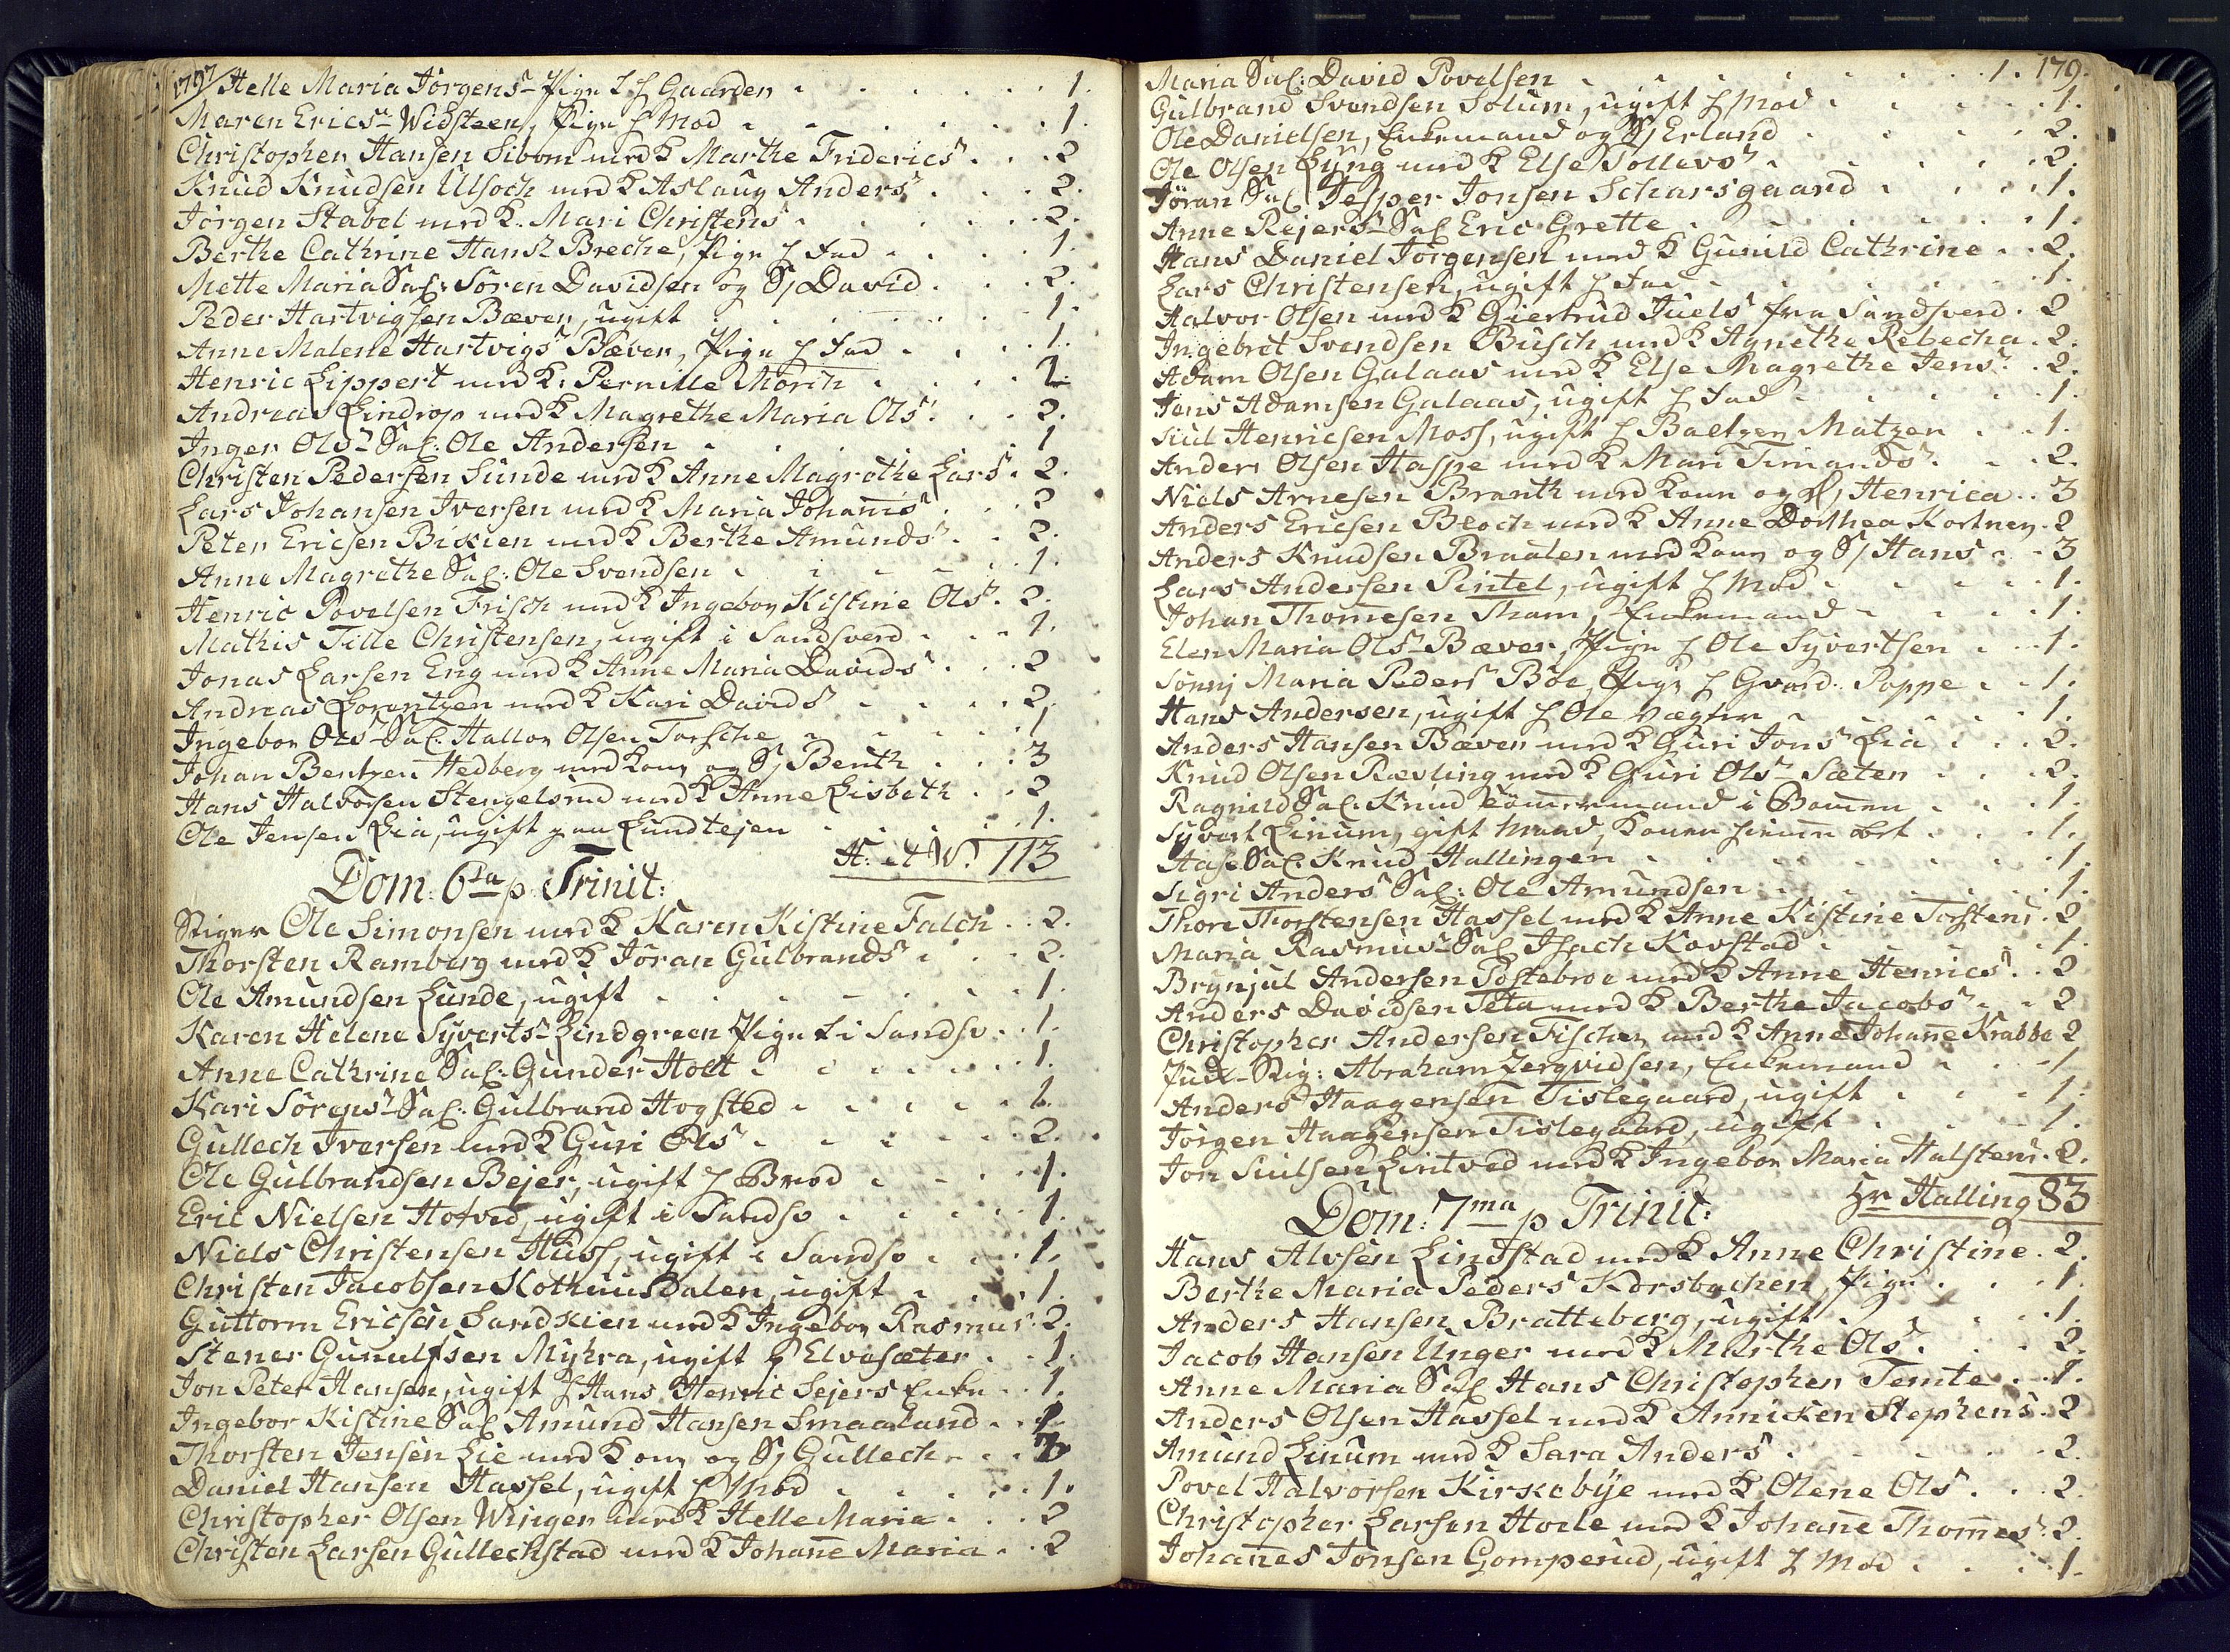 1797/ Helle Maria Jörgensr Pige L H Gaarden . . . . . . 1.
Maren Ericsr Widsteen, Pige H Mod . . . . . . 1.
Christopher Hansen Sibom med K Marthe Friderics . . . 2
Knud Knudsen Ulsoch med K Aslaug Anders . . . 2.
Jörgen Stabel med K. Mari Christens . . . . 2.
Berthe Cathrine Hans Breche, Pige H Fad . . . . 1.
Mette Maria Sal: Sören Davidsen og S/ David . . . 2.
Peder Hartvigsen Bæver, ugift . . . . . 1.
Anne Malene Hartvigs Bæver, Pige H Fad . . . . 1.
Henric Lippert med K: Pernille Morch . . . . 2
Andreas Lindrop med K Magrethe Maria Ols . . . 2.
Inger Ols Sal: Ole Andersen . . . . . 1
Christen Pedersen Sunde med K Anne Magrethe Lars . 2.
Lars Johansen Iversen med K Maria Johanis . . . 2
Peter Ericsen Bixien med K Berthe Amunds . . 2.
Anne Magrethe Sal: Ole Svendsen . . . . . 1.
Henric Povelsen Frisch med K Ingebor Kistine Ols . 2.
Mathis Tille Christensen, ugift i Sandsverd . . . 1.
Jonas Larsen Eng med K Anne Maria Davids . . . 2
Andreas Lorentzen med K Kari Davids . . . . 2.
Ingebor Ols Sal. Hallor Olsen Torsche . . . . 1
Johan Bentzen Hedberg med Kone og S/ Benth . . . 3
Hans Halvorsen Stengelsrud med K Anne Lisbeth . . 2
Ole Jensen Lia, ugift paa Lundtejen . . . . . 1.
H: et W. 113
Dom: 6ta p. Trinit:
Stiger Ole Simonsen med K Karen Kistine Falch . . 2.
Thorsten Ramberg med K Jöran Gulbrands . . . 2.
Ole Amundsen Lunde, ugift . . . . . . 1.
Karen Helene Syverts Lindgreen Pige L i Sandsv . . 1.
Anne Cathrine Sal. Gunder Holt . . . . . 1.
Kari Sörens Sal: Gulbrand Hogsted . . . . . 1.
Gullech Iversen med K Guri Ols . . . . . 2.
Ole Gulbrandsen Bejer, ugift H Brod . . . . 1.
Eric Nielsen Hotved, ugift i Sandsv . . . . 1.
Niels Christensen Huss, ugift i Sandsv . . . 1.
Christen Jacobsen Kothuusdalen, ugift . . . . 1.
Guttorm Ericsen Sandxien med K Ingebor Rasmus . 2.
Stener Gunulfsen Myhra, ugift p Elvesæter . . . 1.
Jon Peter Hansen, ugift H Hans Henric Sejers Enke . . 1.
Ingebor Kistine Sal Amund Hansen Smaaland . . 1.
Thorsten Jensen Lie med Kone og S/ Gullech . . . 3
Daniel Hansen Hassel, ugift H Mod . . . . . 1.
Christopher Olsen Winger med K Helle Maria . . . 2
Christen Larsen Gullechstad med K Johane Maria . . 2
Maria Sal: David Povelsen . . . . . . . 1. 179.
Gulbrand Svendsen Solum, ugift H Mod . . . . . 1.
Ole Danielsen, Enkemand og S/ Erland . . . . 2.
Ole Olsen Lyng med K Else Tollevs . . . . . 2.
Jöran Sal Jesper Jonsen Scharsgaard . . . . 1.
Anne Rejers Sal Eric Grette . . . . . 1.
Hans Daniel Jörgensen med K Gunild Cathrine . . 2.
Lars Christensen, ugift H Fad . . . . . 1.
Halvor Olsen med K Giertrud Juels fra Sandsverd . 2
Ingebret Svendsen Busch med K Agnethe Rebecha . 2.
Adam Olsen Galaas med K Else Magrethe Jens . . 2.
Jens Adamsen Galaas, ugift H Fad . . . . . 1.
Siul Henricsen Moss, ugift H Baltzer Matzen . . 1.
Anders Olsen Haspe med K Mari Simonds . . . 2.
Niels Arnesen Branth med Kone og D/ Henrica . . 3
Anders Ericsen Bloch med K Anne Dorthea Kortney . 2
Anders Knudsen Braaten med Kone og S/ Hans . . 3
Lars Andersen Pintel, ugift H Mod . . . . 1.
Johan Thomesen Sham, Enkemand . . . . 1.
Elen Maria Ols Bæver, Pige H Ole Syvertsen . . . 1.
Sönnj Maria Peders Böe, Pige H Gvard. Poppe . . 1.
Hans Andersen, ugift H Ole Vægter . . . . 1.
Anders Hansen Bæver med K Guri Jons Lia . . . 2.
Knud Olsen Rævling med K Guri Ols Sæter . . . 2.
Ragnild Sal. Knud Tömmermand i Bommen . . . 1.
Syvert Linum, gift Mand, Konen siden absl . . . 1.
Aase Sal. Knud Hallingen . . . . . . 1.
Sigri Anders Sal: Ole Amundsen . . . . . . 1.
Thore Thorstensen Hassel med K Anne Kistine Torstens . 2
Maria Rasmus Sal Isach Kovstad . . . . . 1.
Brynjul Andersen Tostebroe med K Anne Henrics . . 2
Anders Davidsen Teta med K Berthe Jacobs . . 2
Christopher Andersen Fischer med K Anne Johane Krabbe 2
Fudx-Stig: Abraham Zerqvidsen, Enkemand . . . 1
Anders Haagensen Tislegaard, ugift . . . 1.
Jörgen Haagensen Tislegaard, ugift . . . . 1.
Jon Siulsen Lintved med K Ingebor Maria Halstens . 2.
Hr Halling 83
Dom: 7ma p Trinit:
Hans Alvsen Lindstad med K Anne Christine . 2.
Berthe Maria Peders Korsbachen, Pige . . . 1.
Anders Hansen Bratteberg, ugift . . . . . 1.
Jacob Hansen Unger med K Marthe Ols . . . 2.
Anne Maria Sal Hans Christopher Temte . . 1.
Anders Olsen Hassel med K Annicken Stephens . 2
Amund Linum med K Sara Anders . . . . . 2.
Povel Halvorsen Kirskebÿe med K Olene Ols . . . 2.
Christopher Larsen Hoele med K Johane Thomes . 2.
Johanes Jonsen Gomperud, ugift H Mod . . . . 1.